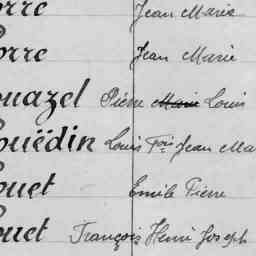 orre Jean Marie
orre Jean Marie
ouazel Pierre Marie Louis
ouëdin Louis Fçois Jean Ma
ouet Emile Pierre
ouet François Henri Joseph